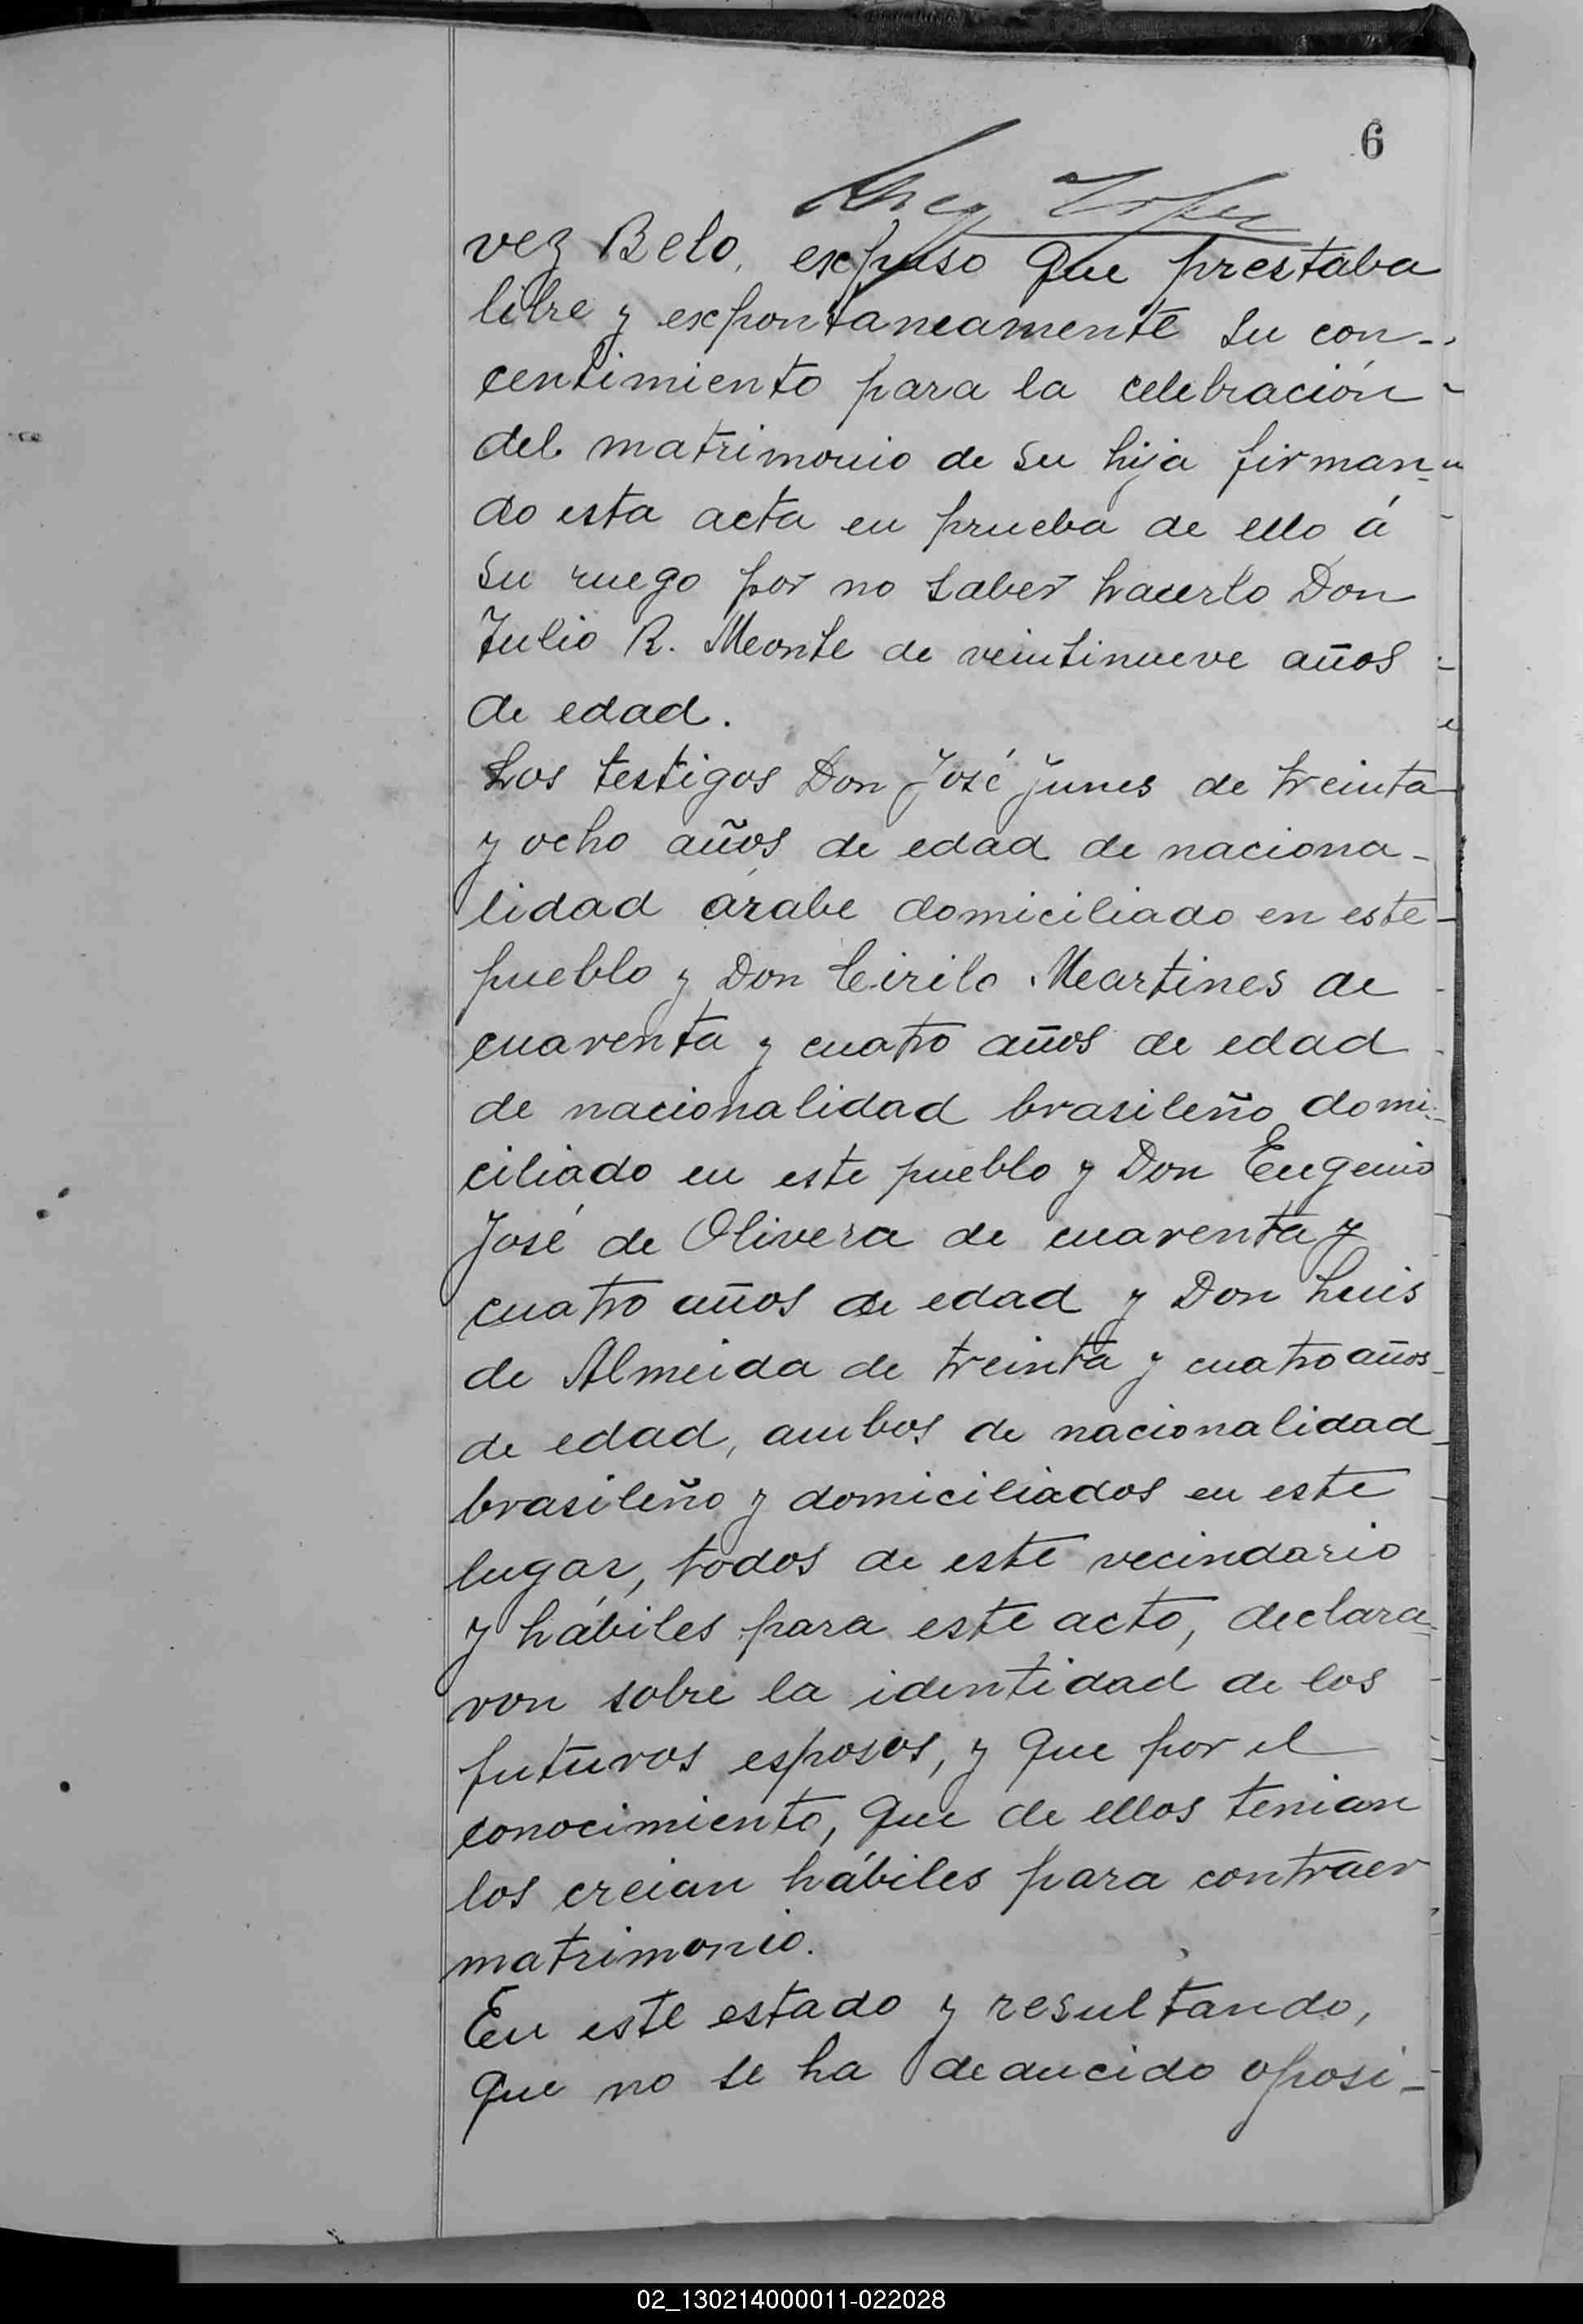 6
vez Belo, expuso que prestaba
libre y expontaneamente su con-
centimiento para la celebración
del matrimonio de su hija firman-
do esta acta en prueba de ello á
su ruego por no saber hacerlo Don
Julio R. Monte de veintinueve años
de edad.
Los testigos Don José Junes de treinta
y ocho años de edad de naciona-
lidad árabe domiciliado en este
pueblo y Don Cirilo Martines de
cuarenta y cuatro años de edad
de nacionalidad brasileño domi-
ciliado en este pueblo y Don Eugenio
José de Olivera de cuarenta y
cuatro años de edad y Don Luis
de Almeida de treinta y cuatro años
de edad, ambos de nacionalidad
brasileño y domiciliados en este
lugar, todos de este vecindario
y hábiles para este acto, declara-
ron sobre la identidad de los
futuros esposos, y que por el
conocimiento, que de ellos tenian
los creian hábiles para contraer
matrimonio.
En este estado y resultando,
que no se ha deducido oposi-
02_130214000011-022028